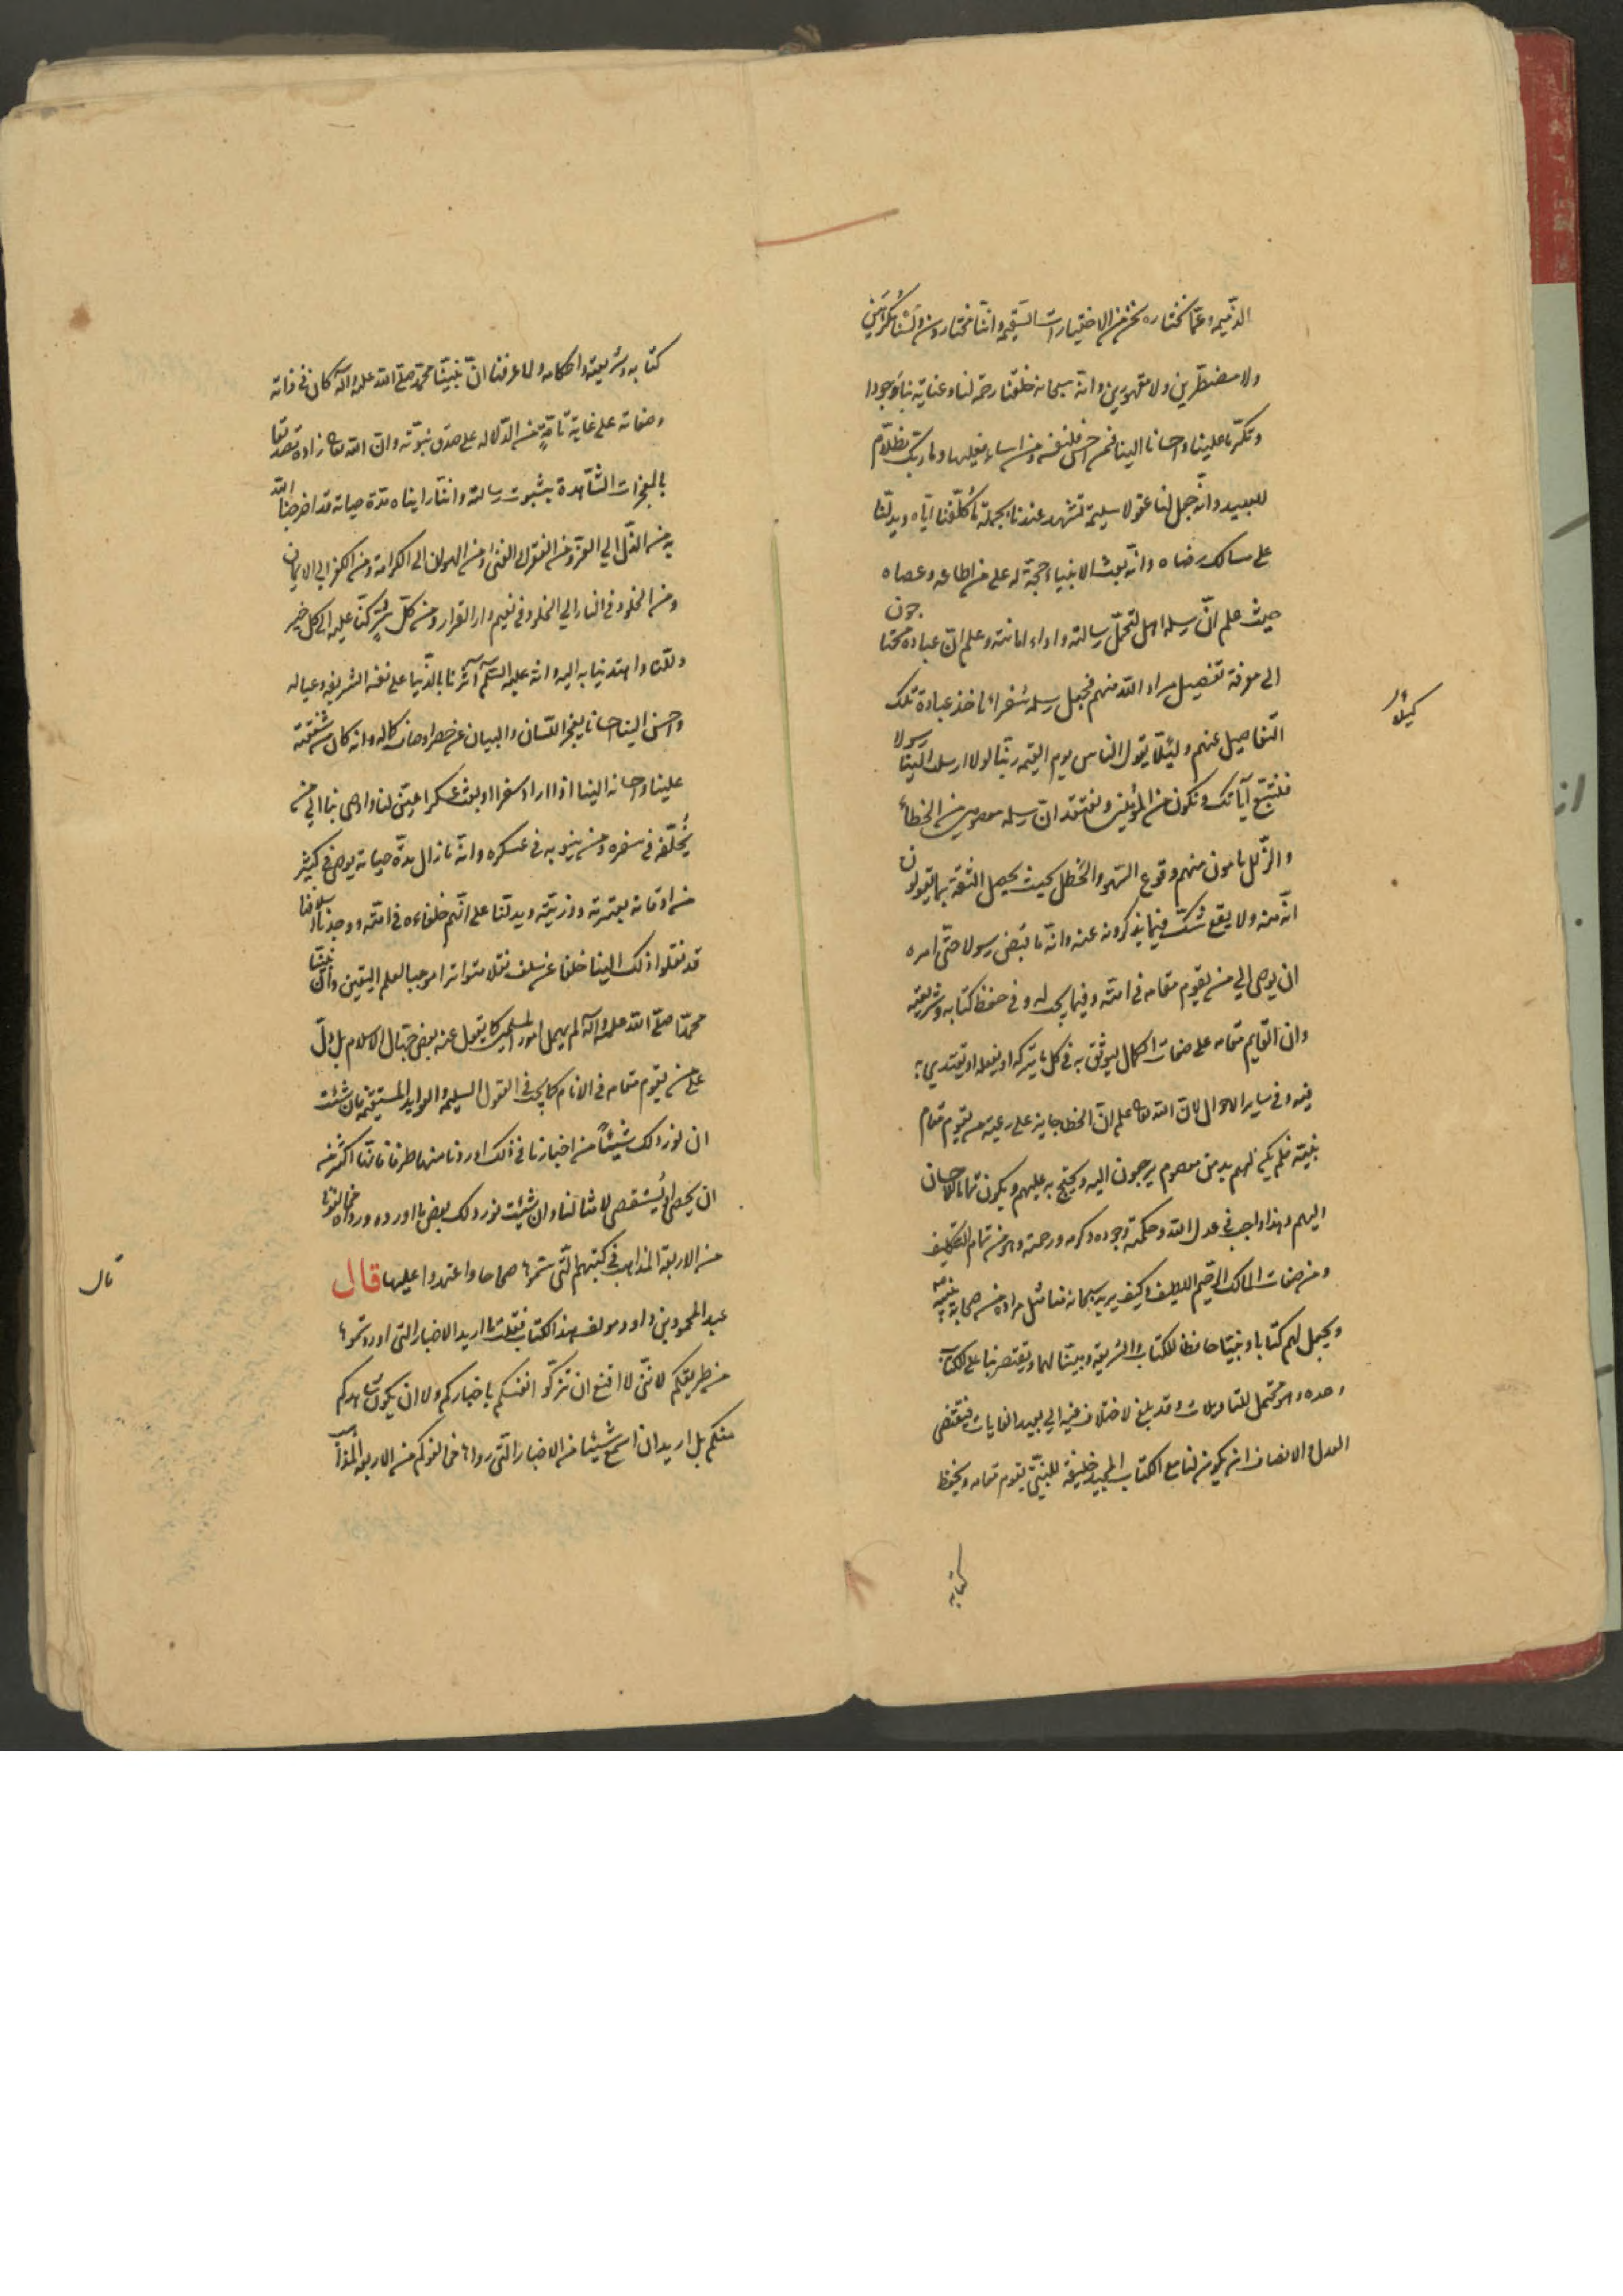 الذميمة وعما نختاره نحن من الاختيارات السقيمة واننا مختارون ولسنا بمكرهين
ولا مضطرين ولا مقهورين وانه سبحانه خلقنا رحمة لنا وعناية بنا وجودا
وتكرما علينا واحسانا الينا فمن احسن فلنفسه ومن اساء فعليها وما ربك بظلام
للعبيد وانه جعل لنا عقولا سليمة تشهد عندنا بجملة ما كلفنا اياه ويدلنا
على مسالك رضاه وانه بعث الانبياء حجة له على من اطاعه وعصاه
حيث علم ان رسله اهل لتحمل رسالته واداء امانته وعلم ان عباده محتاجون
الى معرفة تفصيل مراد الله منهم فجعل رسله سفراء ناخذ عباده تلك
التفاصيل عنهم ولئلا يقول الناس يوم القيمة ربنا لولا ارسلت الينا رسولا
فنتبع آياتك ونكون من المؤمنين ونعتقد ان رسله معصومين من الخطأ
والزلل مامون منهم وقوع السهو والخطل بحيث يحصل الثقة بما يقولون
انه منه ولا يقع شك فيما يذكرونه عنه وانه ما قبض رسولا حتى امره
ان يوصي الي من يقوم مقامه في امته وفيما يجب له وفي حفظ كتابه وشريعته
وان القايم مقامه على صفات الكمال ليوثق به في كل ما يتركه او يفعله او يقتدي به
فيه وفي ساير الاحوال لان الله تعالى علم ان الخطا جايز على رعية من يقوم مقام
نبيه فلم يكن لهم بد من معصوم يرجعون اليه ويحتج به عليهم ويكون تماما للاحسان
اليهم وهذا واجب في عدل الله وحكمته وجوده وكرمه ورحمته وهو من تمام التكليف
ومن صفات المالك الرحيم اللطيف وكيف يريد سبحانه منا مثل مراده من صحابة نبيه
ويجعل لهم كتابا ونبيا حافظا للكتاب والشريعة ومبينا لهما ويقتصر بنا على الكتاب
وحده وهو محتمل للتاويلات وقد بلغ الاختلاف فيه الي بعيد الغايات فيقتضي
العدل والانصاف ان يكون لنا مع الكتاب المجيد خليفة للنبي يقوم مقامه ويحفظ
كتابه
كتابه وشريعته واحكامه ولما عرفنا ان نبينا محمد صلى الله عليه وآله كان في ذاته
وصفاته على غاية تامة من الدلالة على صدق نبوته وان الله تعالى زاده تصديقا
بالمعجزات الشاهدة بثبوت رسالته واننا راينا مدة حياته قد اخرجنا الله
به من الذل الي العز ومن الفقر الي الغنى ومن الهوان الى الكرامة ومن الكفر الي الايمان
ومن الخلود في النار الي الخلود في نعيم دار القرار ومن كل شر كنا عليه الي كل خير
دلنا واهتدينا به اليه وانه عليه السلم آثرنا بالدنيا على نفسه الشريفة وعياله
واحسن الينا احسانا يعجز اللسان والبيان عن حصر اوصاف كماله وانه كان من شفقته
علينا واحسانه الينا اذا اراد سفرا او بعث عسكرا عين لنا واوصى بنا الي من
يخلفه في سفره ومن ينوبه في عسكره وانه ما زال مدة حياته يوصي في كثير
من اوقاته بعترته وذريته ويدلنا على انهم خلفاءه في امته ووجدنا اسلافنا
قد نقلوا ذلك الينا خلفا عن سلف نقلا متواترا موجبا لعلم اليقين وان نبينا
محمدا صلى الله عليه وآله لم يهمل امور المسلمين كما يقول عنه بعض جهال الاسلام بل دل
على من يقوم مقامه في الانام كما يجب في العقول السليمة والعوايد المستقيمة فان شئت
ان نورد لك شيئا من اخبارنا في ذلك اوردنا منها طرفا فانها اكثر من
ان يحصى او يستقصى لامثالنا وان شئت نورد لك بعض ما اورده ورواه مخالفونا
من الاربعة المذاهب في كتبهم التي سموها صحاحا واعتمدوا عليها قال
عبد المحمود بن داود مولف هذا الكتاب فقلت ما اريد الاخبار التي اوردتموها
من طريقكم لانني لا اقنع ان تزكوا انفسكم باخباركم ولا ان يكون شاهدكم
منكم بل اريد ان اسمع شيئا من الاخبار التي رواها مخالفوكم من الاربعة المذاهب
قال